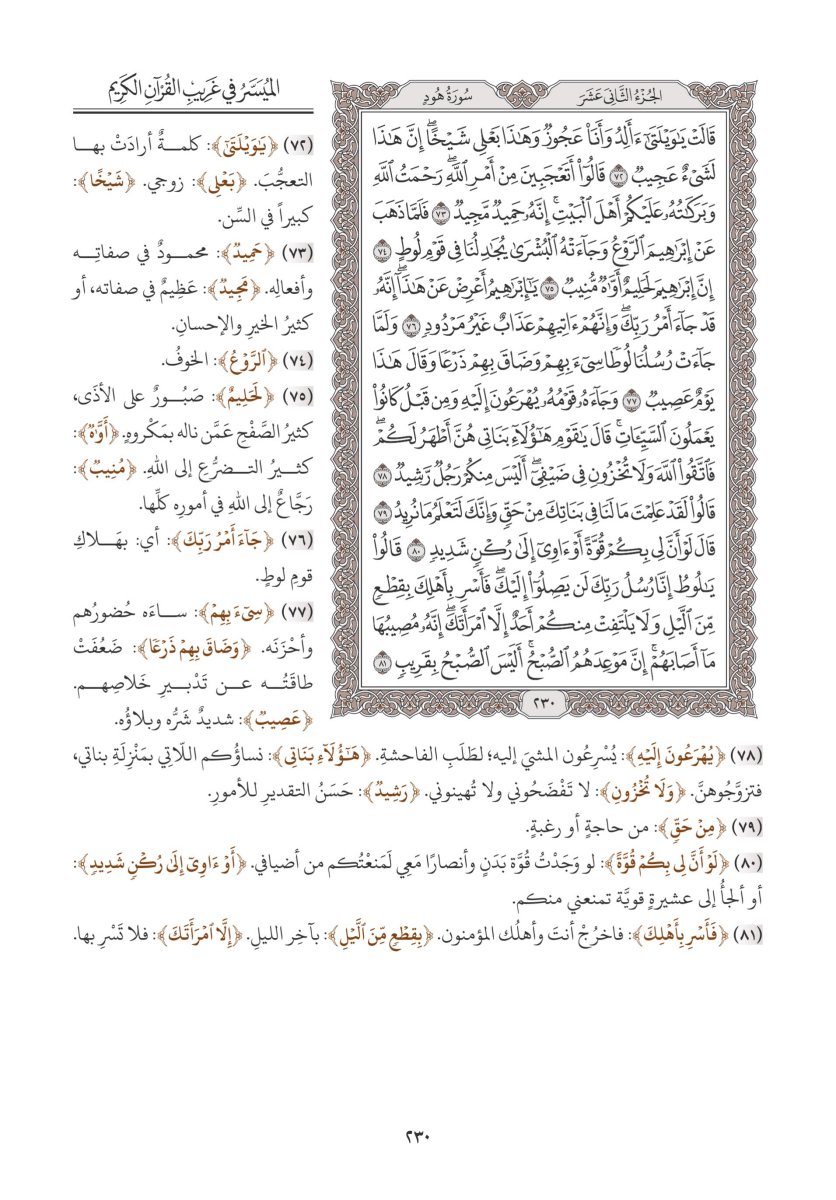 المُيَسَّرُ في غَرِيبِ القُرْآنِ الكَرِيم
الجُزْءُ الثَّانِي عَشَرَ
سُورَةُ هُودٍ
قَالَتۡ يَٰوَيۡلَتَىٰٓ ءَأَلِدُ وَأَنَا۠ عَجُوزٞ وَهَٰذَا بَعۡلِي شَيۡخًاۖ إِنَّ هَٰذَا
لَشَيۡءٌ عَجِيبٞ ٧٢ قَالُوٓاْ أَتَعۡجَبِينَ مِنۡ أَمۡرِ ٱللَّهِۖ رَحۡمَتُ ٱللَّهِ
وَبَرَكَٰتُهُۥ عَلَيۡكُمۡ أَهۡلَ ٱلۡبَيۡتِۚ إِنَّهُۥ حَمِيدٞ مَّجِيدٞ ٧٣ فَلَمَّا ذَهَبَ
عَنۡ إِبۡرَٰهِيمَ ٱلرَّوۡعُ وَجَآءَتۡهُ ٱلۡبُشۡرَىٰ يُجَٰدِلُنَا فِي قَوۡمِ لُوطٍ ٧٤
إِنَّ إِبۡرَٰهِيمَ لَحَلِيمٌ أَوَّٰهٞ مُّنِيبٞ ٧٥ يَٰٓإِبۡرَٰهِيمُ أَعۡرِضۡ عَنۡ هَٰذَآۖ إِنَّهُۥ
قَدۡ جَآءَ أَمۡرُ رَبِّكَۖ وَإِنَّهُمۡ ءَاتِيهِمۡ عَذَابٌ غَيۡرُ مَرۡدُودٖ ٧٦ وَلَمَّا
جَآءَتۡ رُسُلُنَا لُوطٗا سِيٓءَ بِهِمۡ وَضَاقَ بِهِمۡ ذَرۡعٗا وَقَالَ هَٰذَا
يَوۡمٌ عَصِيبٞ ٧٧ وَجَآءَهُۥ قَوۡمُهُۥ يُهۡرَعُونَ إِلَيۡهِ وَمِن قَبۡلُ كَانُواْ
يَعۡمَلُونَ ٱلسَّيِّـَٔاتِۚ قَالَ يَٰقَوۡمِ هَٰٓؤُلَآءِ بَنَاتِي هُنَّ أَطۡهَرُ لَكُمۡۖ
فَٱتَّقُواْ ٱللَّهَ وَلَا تُخۡزُونِ فِي ضَيۡفِيٓۖ أَلَيۡسَ مِنكُمۡ رَجُلٞ رَّشِيدٞ ٧٨
قَالُواْ لَقَدۡ عَلِمۡتَ مَا لَنَا فِي بَنَاتِكَ مِنۡ حَقّٖ وَإِنَّكَ لَتَعۡلَمُ مَا نُرِيدُ ٧٩
قَالَ لَوۡ أَنَّ لِي بِكُمۡ قُوَّةً أَوۡ ءَاوِيٓ إِلَىٰ رُكۡنٖ شَدِيدٖ ٨٠ قَالُواْ
يَٰلُوطُ إِنَّا رُسُلُ رَبِّكَ لَن يَصِلُوٓاْ إِلَيۡكَۖ فَأَسۡرِ بِأَهۡلِكَ بِقِطۡعٖ
مِّنَ ٱلَّيۡلِ وَلَا يَلۡتَفِتۡ مِنكُمۡ أَحَدٌ إِلَّا ٱمۡرَأَتَكَۖ إِنَّهُۥ مُصِيبُهَا
مَآ أَصَابَهُمۡۚ إِنَّ مَوۡعِدَهُمُ ٱلصُّبۡحُۚ أَلَيۡسَ ٱلصُّبۡحُ بِقَرِيبٖ ٨١
٢٣٠
(٧٢) ﴿يَٰوَيۡلَتَىٰٓ﴾: كلمةٌ أرادَتْ بها
التعجُّبَ. ﴿بَعۡلِي﴾: زوجي. ﴿شَيۡخًا﴾:
كبيراً في السِّن.
(٧٣) ﴿حَمِيدٞ﴾: محمودٌ في صفاتِه
وأفعالِه. ﴿مَّجِيدٞ﴾: عَظِيمٌ في صفاته، أو
كثيرُ الخيرِ والإحسانِ.
(٧٤) ﴿ٱلرَّوۡعُ﴾: الخوفُ.
(٧٥) ﴿لَحَلِيمٌ﴾: صَبُورٌ على الأذَى،
كثيرُ الصَّفْحِ عَمَّن ناله بمَكْروهٍ. ﴿أَوَّٰهٞ﴾:
كثيرُ التضرُّعِ إلى اللهِ. ﴿مُّنِيبٞ﴾:
رَجَّاعٌ إلى اللهِ في أمورِه كلِّها.
(٧٦) ﴿جَآءَ أَمۡرُ رَبِّكَ﴾: أي: بهَلاكِ
قومِ لوطٍ.
(٧٧) ﴿سِيٓءَ بِهِمۡ﴾: ساءَه حُضورُهم
وأحْزَنَه. ﴿وَضَاقَ بِهِمۡ ذَرۡعٗا﴾: ضَعُفَتْ
طاقَتُه عن تَدْبيرِ خَلاصِهم.
﴿عَصِيبٞ﴾: شديدٌ شَرُّه وبلاؤُه.
(٧٨) ﴿يُهۡرَعُونَ إِلَيۡهِ﴾: يُسْرِعُون المشيَ إليه؛ لطَلَبِ الفاحشةِ. ﴿هَٰٓؤُلَآءِ بَنَاتِي﴾: نساؤُكم اللَّاتِي بمَنْزِلَةِ بناتي،
فتزوَّجُوهنَّ. ﴿وَلَا تُخۡزُونِ﴾: لا تَفْضَحُوني ولا تُهينوني. ﴿رَّشِيدٞ﴾: حَسَنُ التقديرِ للأمورِ.
(٧٩) ﴿مِنۡ حَقّٖ﴾: من حاجةٍ أو رغبةٍ.
(٨٠) ﴿لَوۡ أَنَّ لِي بِكُمۡ قُوَّةً﴾: لو وَجَدْتُ قُوَّة بَدَنٍ وأنصارًا مَعِي لَمَنَعْتُكم من أضيافي. ﴿أَوۡ ءَاوِيٓ إِلَىٰ رُكۡنٖ شَدِيدٖ﴾:
أو ألجأُ إلى عشيرةٍ قويَّة تمنعني منكم.
(٨١) ﴿فَأَسۡرِ بِأَهۡلِكَ﴾: فاخرُجْ أنتَ وأهلُك المؤمنون. ﴿بِقِطۡعٖ مِّنَ ٱلَّيۡلِ﴾: بآخِر الليلِ. ﴿إِلَّا ٱمۡرَأَتَكَ﴾: فلا تَسْرِ بها.
٢٣٠